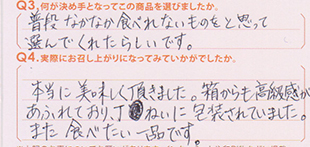 Q3.何が決め手となってこの商品を選びましたか。
普段なかなか食べれないものをと思って
選んでくれたらしいです。
Q4.実際にお召し上がりになってみていかがでしたか。
本当に美味しく頂きました。箱からも高級感が
あふれており、丁ねいに包装されていました。
また食べたい一品です。